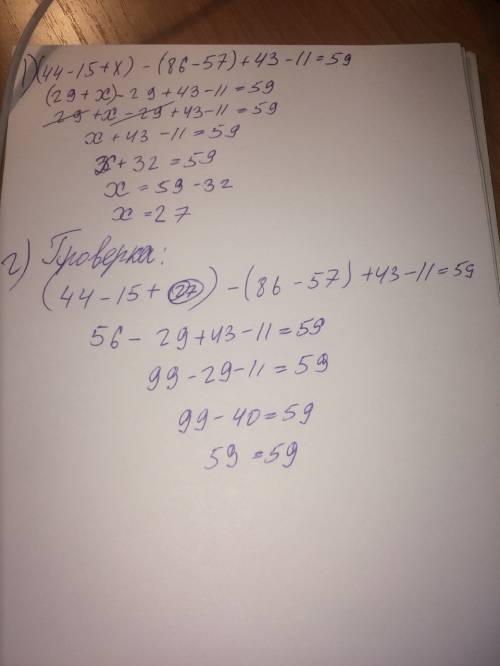 1) (44-15+x) - (86-57)+43-11=59
(29+x)-29+43-11=59
29+x-29+43-11=59
x+43-11=59
x+32=59
x=59-32
x=27
2) Проверка:
(44-15+27) - (86-57)+43-11=59
56-29+43-11=59
99-29-11=59
99-40=59
59=59